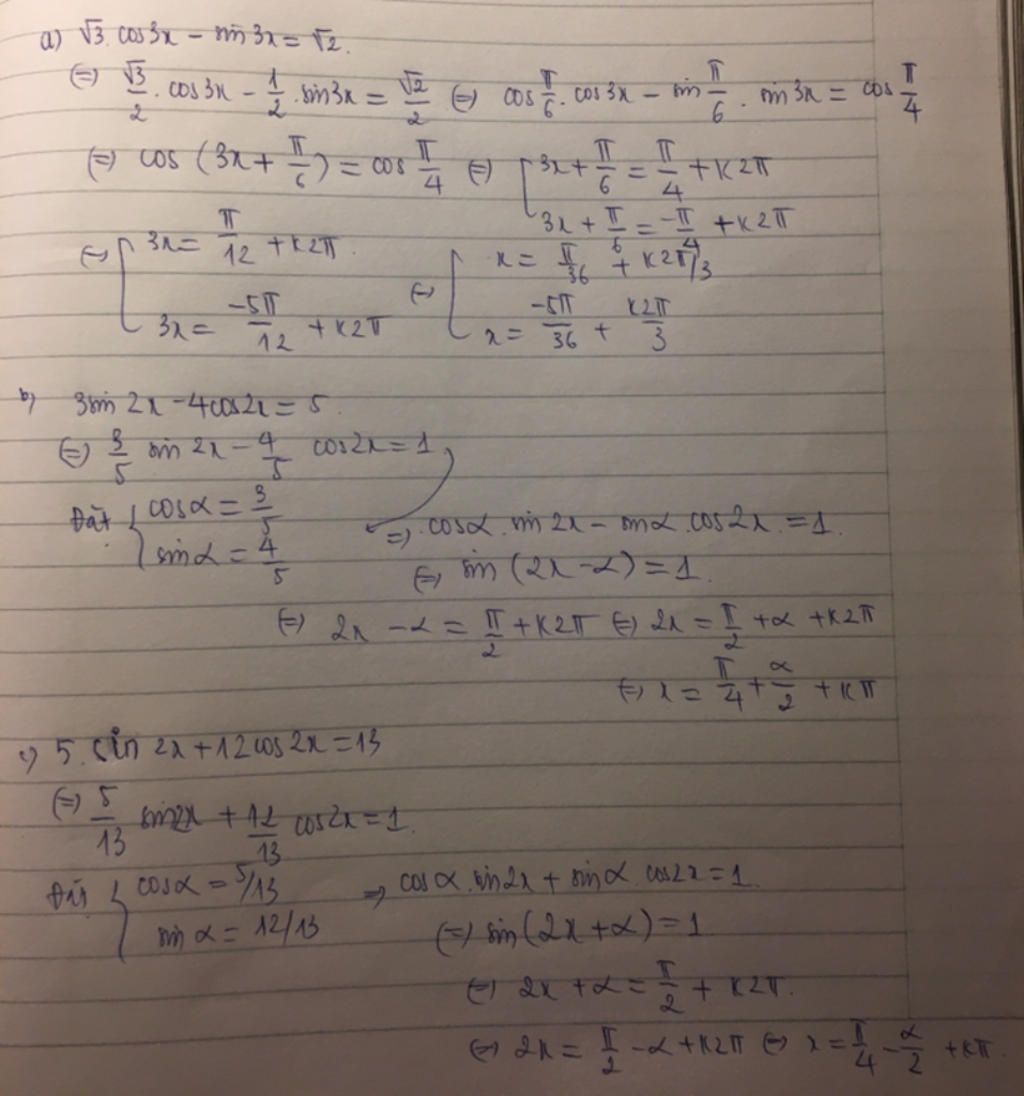 a) √3 cos3x - sin 3x = √2.
(=) √3/2 . cos3x - 1/2 . sin3x = √2/2 (=) cos π/6 . cos3x - sin π/6 . sin3x = cos π/4
(=) cos (3x + π/6) = cos π/4 (=) [ 3x + π/6 = π/4 + k2π
3x + π/6 = -π/4 + k2π
(=) [ 3x = π/12 + k2π. (=) [ x = π/36 + k2π/3
3x = -5π/12 + k2π x = -5π/36 + k2π/3
b) 3sin 2x - 4cos2x = 5
(=) 3/5 sin 2x - 4/5 cos2x = 1
Đặt { cosα = 3/5 =) cosα . sin 2x - sinα . cos2x = 1.
sinα = 4/5 (=) sin (2x - α) = 1.
(=) 2x - α = π/2 + k2π (=) 2x = π/2 + α + k2π
(=) x = π/4 + α/2 + kπ
c) 5. sin 2x + 12cos2x = 13
(=) 5/13 sin2x + 12/13 cos2x = 1.
Đặt { cosα = 5/13 =) cosα . sin2x + sinα . cos2x = 1.
sin α = 12/13 (=) sin(2x + α) = 1
(=) 2x + α = π/2 + k2π.
(=) 2x = π/2 - α + k2π (=) x = π/4 - α/2 + kπ.